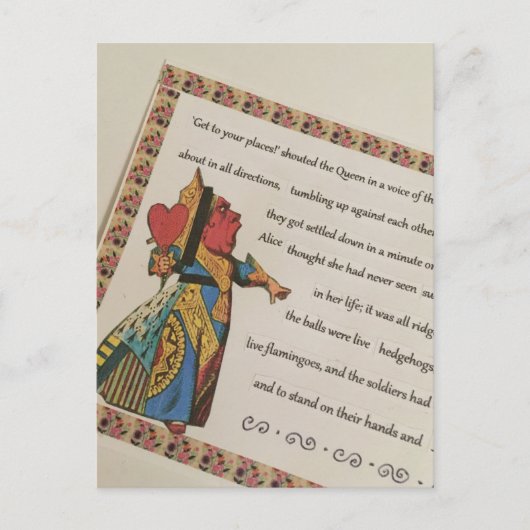 'Get to your places!' shouted the Queen in a voice of th
about in all directions, tumbling up against each other
they got settled down in a minute or
Alice thought she had never seen su
in her life; it was all ridg
the balls were live hedgehogs
live flamingoes, and the soldiers had
and to stand on their hands and